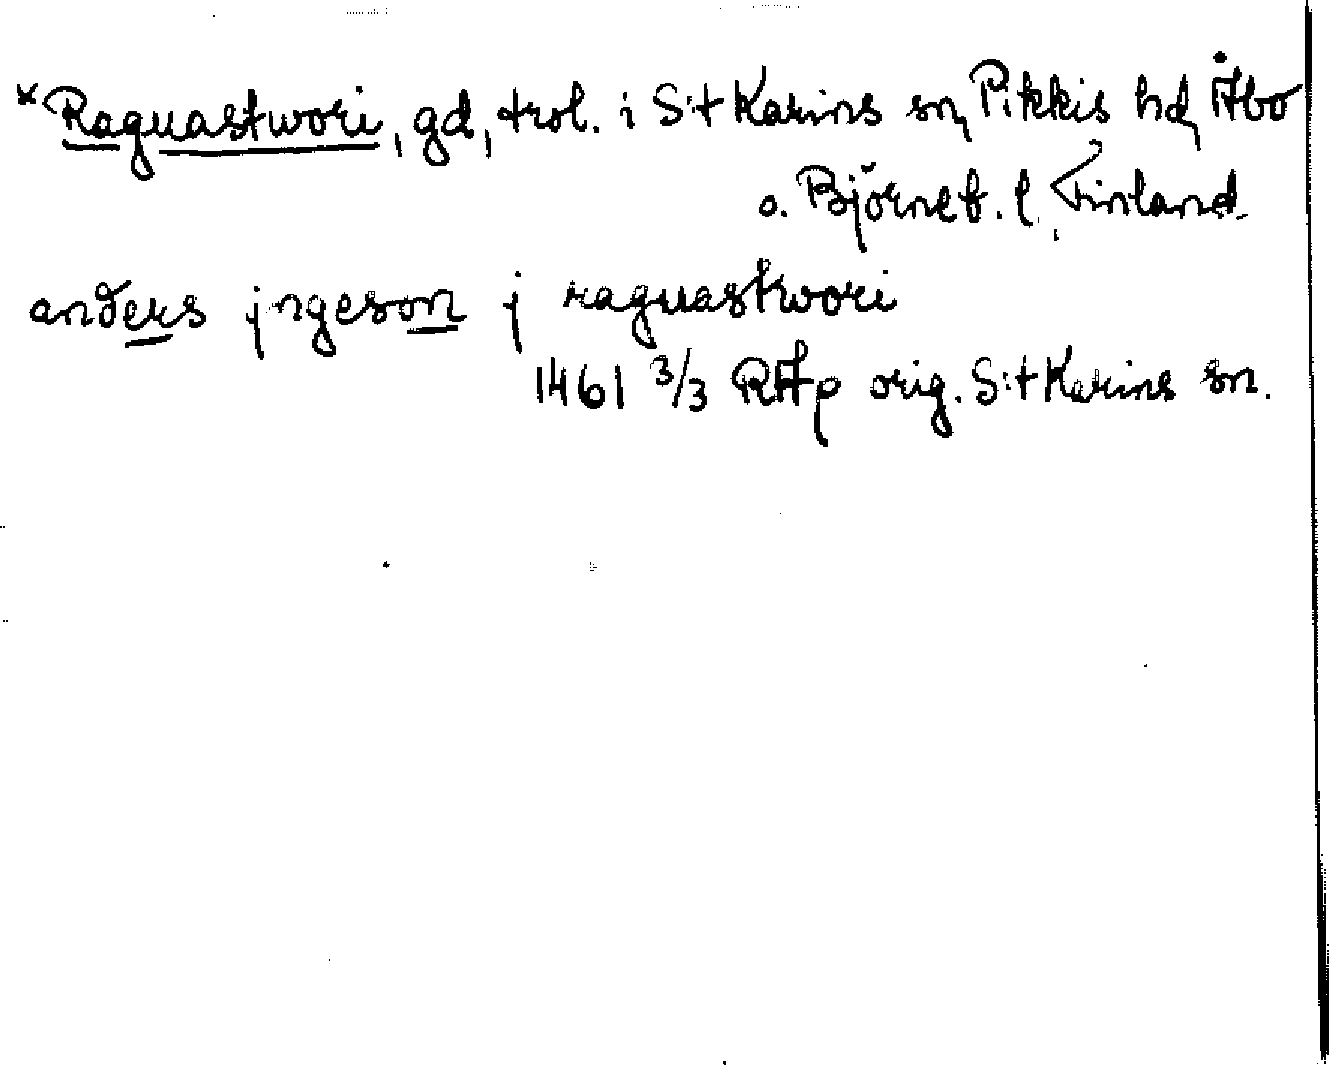 *Raguastwori, gd, trol. i S:t Karins sn, Pikkis hd, Åbo
o. Björneb. l. Finland
anders jngeson j raguastwori
1461 3/3 RAp orig. S:t Karins sn.